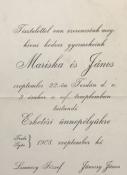 Tisztelettel van szerencsénk meg-
hívni kedves gyermekeink
Mariska és János
szeptember 22-én Tordán d. u.
3 órakor a ref. templomban
tartandó
Esketési ünnepélyükre
1908. szeptember hó
József Jánosy János